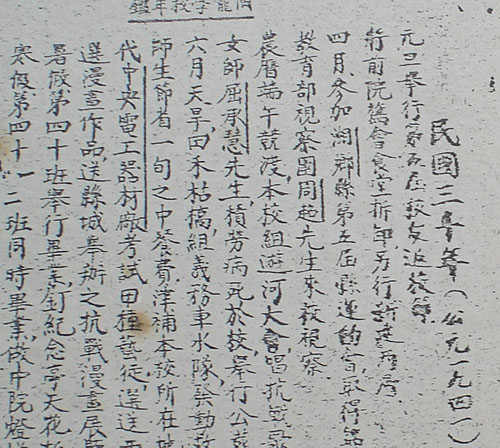 學校年鑑
民國三十年（公元一九四一）
元旦舉行第五屆校友返校節
將前院舊會食堂拆卸另行新建
四月參加湘鄉縣第五屆縣運動會取得第
教育部視察團周趙先生來校視察
農曆端午競渡本校組遊河大會唱抗戰
女師屈承慧先生積勞病死於校舉行公葬
六月天旱田禾枯槁組義務車水隊發動教
師生節省一旬之中餐費津補本校所在地
代中央電工器材廠考試田種藝徒選送
選漫畫作品送縣城舉辦之抗戰漫畫展
暑假第四十班舉行畢業釘紀念亭天花板
寒假第四十一二班同時畢業做中院燈